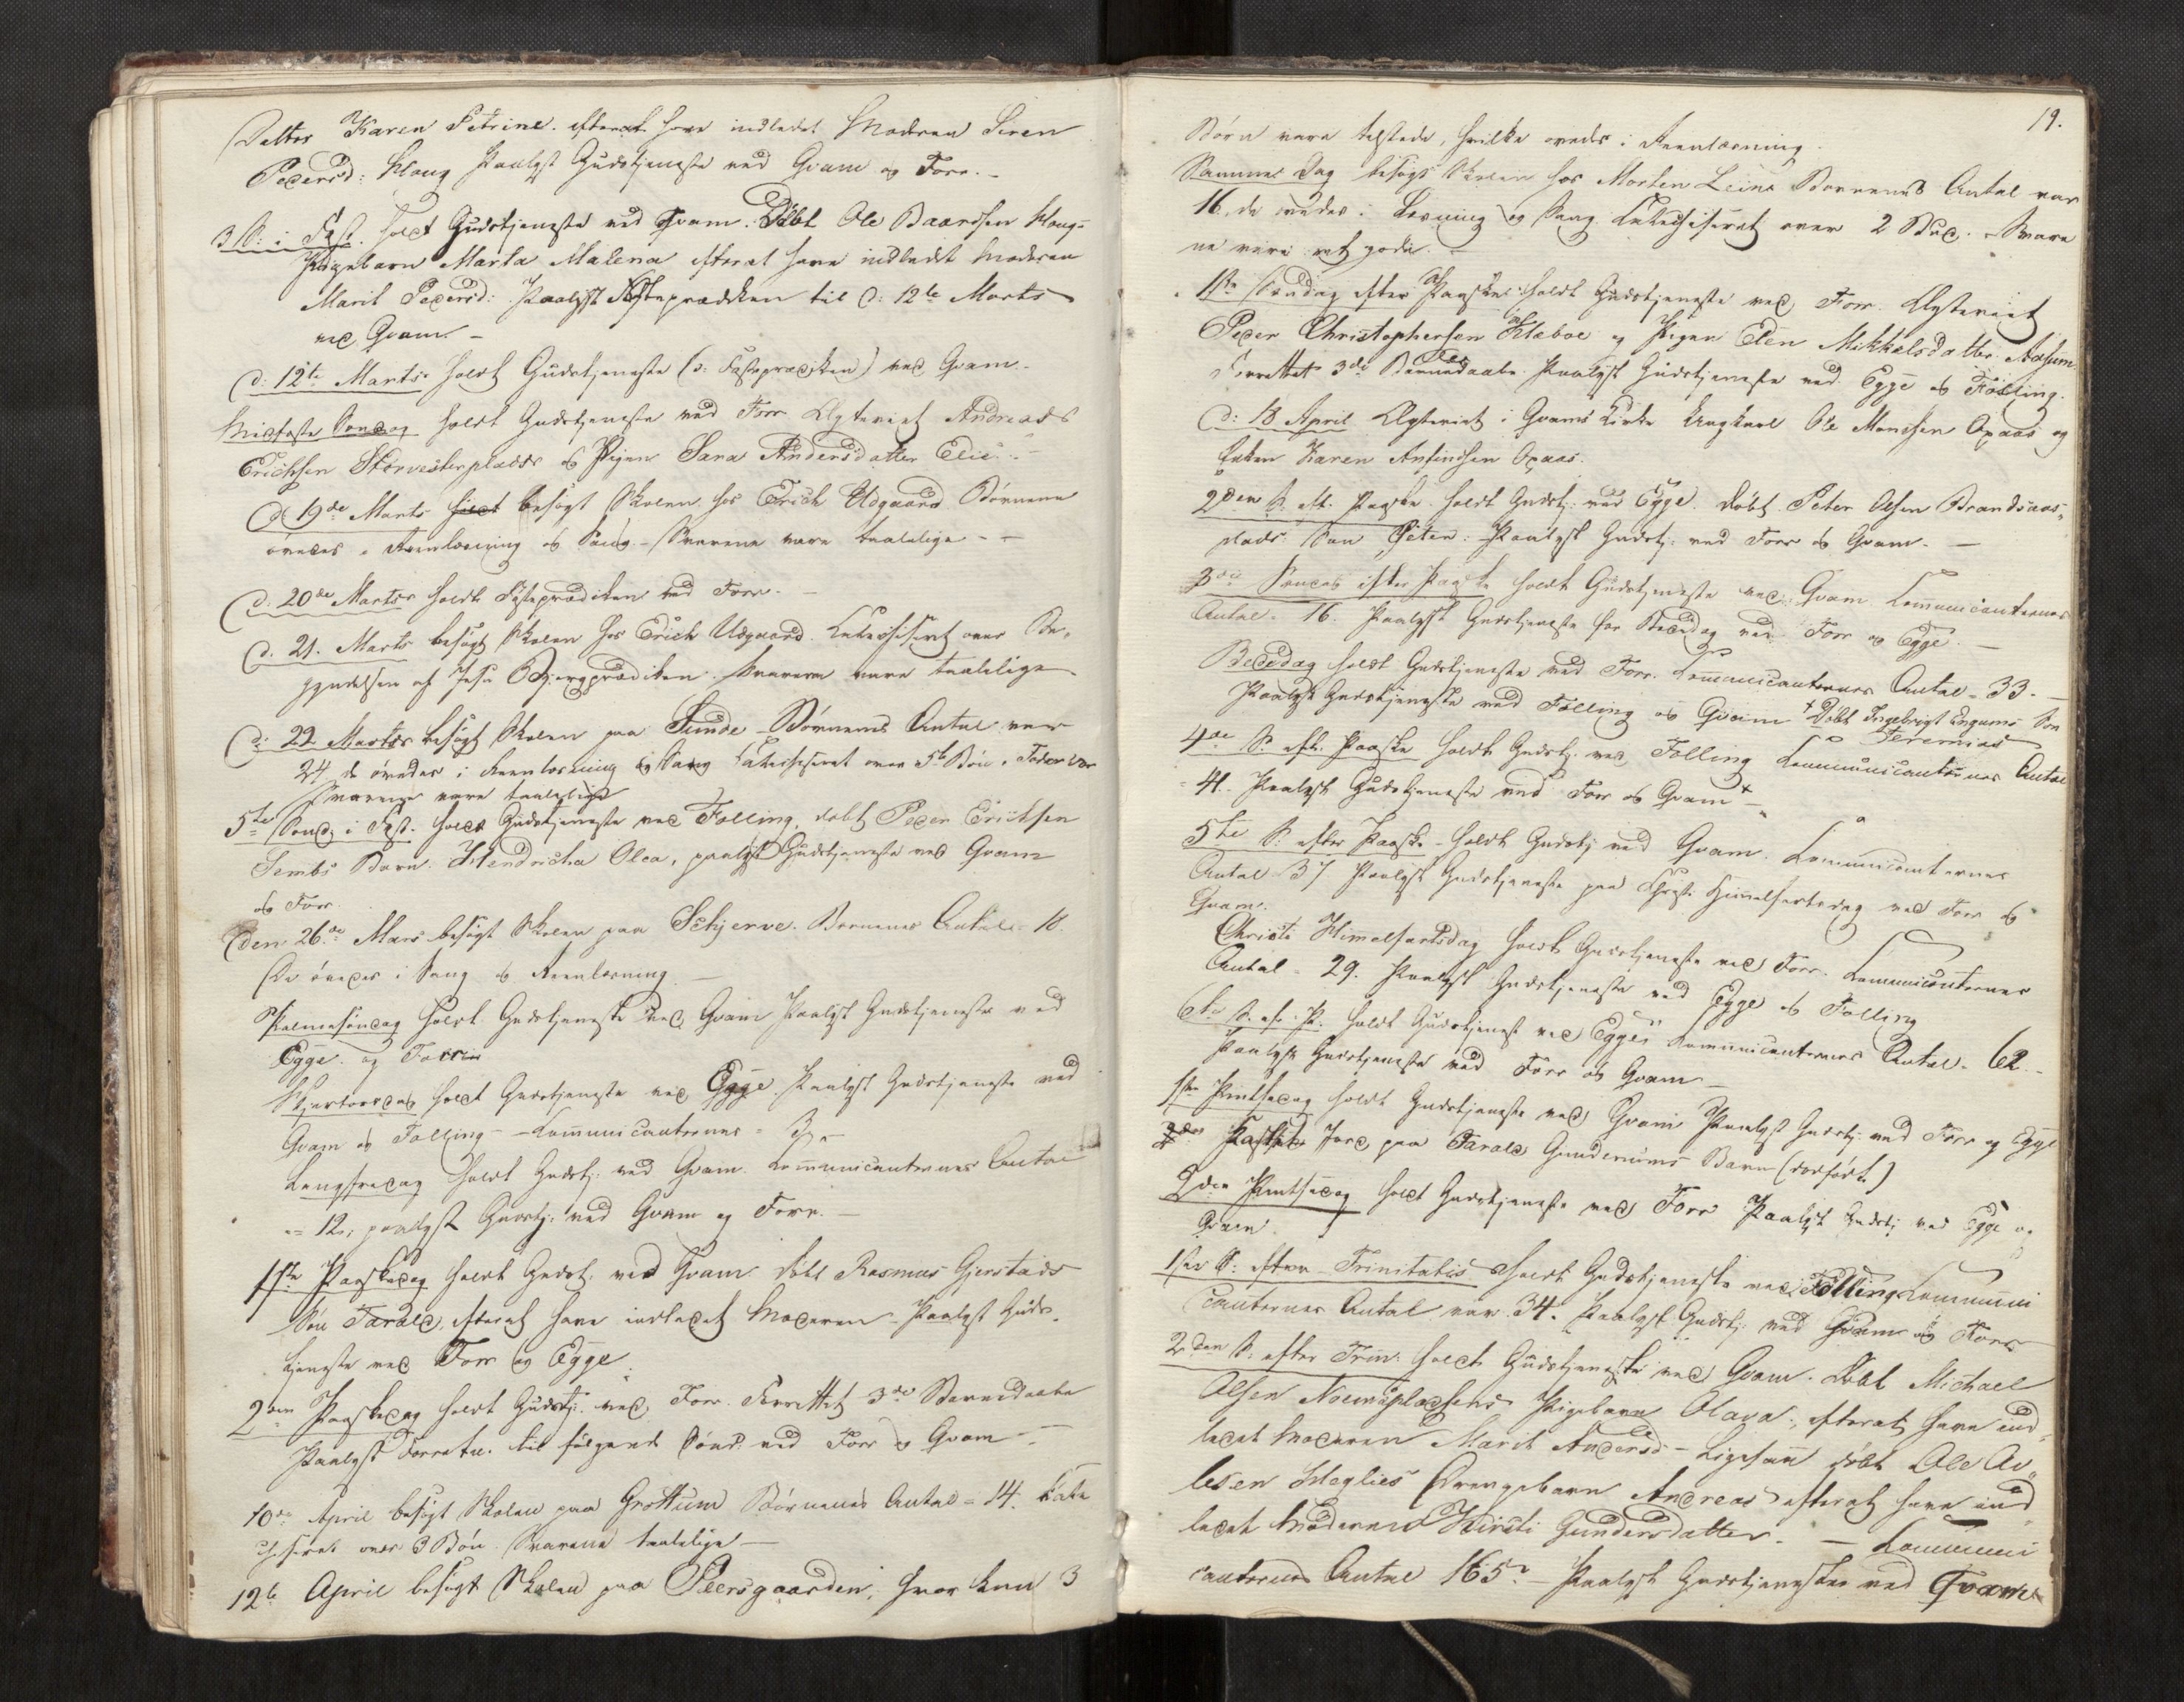 Datter Karen Petrine. efterat have indledet Moderen Siren
Pedersd: Haug Paalyst Gudstjeneste ved Qvam og Forr. –
3 S: i Fast. holdt Gudstjeneste ved Qvam. Döbt Ole Baardsen Haug=
Pigebarn Marta Malena efterat have indledet Moderen
Marit Pedersd: Paalyst Fasteprædiken til d: 12te Marts
ved Qvam. –
d: 12te Marts holdt Gudstjeneste (o: Fasteprædiken) ved Qvam.
Midfaste Söndag holdt Gudstjeneste ved Forr Ægteviet Andreads
Erichsen Störvesterplads & Pigen Sara Andersdatter Elie. –
d: 19de Marts holdt besögt Skolen hos Erich Udgaard Börnene
övedes i Reenlæsning og Sang. – Svarene vare taalelige – –
d. 20de Marts holdt Fasteprædiken ved Forr. –
d. 21. Marts besögt Skolen hos Erich Udgaard. Catechiseret over Be,
gyndelsen af Jesu Bjergprædiken. Svarene vare taalelige
d: 22 Marts besögt Skolen paa Sunde – Börnenes Antal var
24 de övedes i Reenlæsning og Sang Catechiseret over 5te Bön i Fader vor
Svarene vare taalelige
5te Sönd: i Fast. holdt Gudstjeneste ved Følling, döbt Peder Erichsen
Sembs Barn. Hendricha Olea, paalyst Gudstjeneste ved Qvam
og Forr.
den 26de Mars besögt Skolen paa Schjerve. Börnenes Antal = 18.
De övedes i Sang og Reenlæsning –
Palmesöndag holdt Gudstjeneste ved Qvam Paalyst Gudstjeneste ved
Egge og Forr
Skjertorsdag holdt Gudstjeneste ved Egge. Paalyst Gudstjeneste ved
Qvam og Følling – – Communicanternes =
Langfredag holdt Gudstj: ved Qvam. Communicanternes Antal
= 12, paalyst Gudstj: ved Qvam og Forr. –
1ste Paaskedag holdt Gudst. ved Qvam döbt Rasmus Gjerstads
Sön Tarald, efterat have indledet Moderen – Paalyst Guds-
tjeneste ved Forr og Egge.
2den Paaskedag holdt Gudstj: ved Forr. Forrettet 3de Barnedaabe
Paalyst Forretn. til fölgende Sönd. ved Forr og Qvam –
10de April besögt Skolen paa Grottum Börnenes Antal = 14. Cate
chiseret over 3 Bön. Svarene taalelige –
12te April besögt Skolen paa Peersgaarden, hvor kun 3
19.
Börn vare tilstede, hvilke övedes i Reenlæsning.
Sammes Dag besögt Skolen hos Morten Leine Börnenes Antal var
16, de övedes i Læsning og Sang. Catechiseret over 2 Bud. – Svare
ne vare ret gode. –
1ste Söndag efter Paaske holdt Gudstjeneste ved Forr. Ægteviet
Peder Christophersen Klæboe og Pigen Elen Mikkelsdatter Aalsum
Forrettet 3de Barnedaabe. Paalyst Gudstjeneste ved Egge og Følling.
d: 18 April Ægteviet i Qvams Kirke Ungkarl Ole Monsen Opaas og
Enken Karen Anfindsen Opaas.
2den S. eft. Paaske. holdt Gudstj. ved Egge. döbt Peter Olsen Brandsaas,
plads Sön Peter. – Paalyst Gudstj. ved Forr og Qvam. –
3die Söndag efter Paaske holdt Gudstjeneste ved Qvam Communicanternes
Antal = 16. Paalyst Gudstjeneste for Bededag ved Forr og Egge. –
Bededag holdt Gudstjeneste ved Forr. Communicanternes Antal = 33. –
Paalyst Gudstjeneste ved Følling og Qvam + Döbt Ingebrigt Engums Sön
Jeremias
4de S. eft. Paaske holdt Gudstj. ved Følling Communicanternes Antal
= 41. Paalyst Gudstjeneste ved Forr og Qvam + –
5te S: efter Paaske – holdt Gudstj ved Qvam. Communicanternes
Antal 37 Paalyst Gudstjeneste paa Christi Himmelfartsdag ved Forr og
Qvam.
Christi Himmelfartsdag holdt Gudstjeneste ved Forr. Communicanternes
Antal = 29. Paalyst Gudstjeneste ved Egge og Følling
6te S. ef. P. holdt Gudstjenest ved Egge. Communicanternes Antal = 62 –
Paalyst Gudstjeneste ved Forr og Qvam –
1ste Pintsedag holdt Gudstjeneste ved Qvam Paalyst Gudstj. ved Forr og Egge
Kastet Jord paa Tarald Gundersens Barn (dödfödt)
2den Pintsedag holdt Gudstjeneste ved Forr Paalyst Gudstj ved Egge og
Qvam.
1ste S: efter Trinitatis holdt Gudstjeneste ved Følling. Communi
canternes Antal var 34. Paalyst Gudstj. ved Qvam og Forr
2den S: efter Trin: holdt Gudstjeneste ved Qvam. Döbt Michael
Olsen Pigebarn Olava, efterat have ind
ledet Moderen Marit Andersd – Ligesaa döbt Ole Ar,
lesen Heglies Drengebarn Andreas efterat have ind
ledet Moderen Kirsti Gundersdatter. – Communi
canternes Antal 165 – Paalyst Gudstjeneste ved Qvam